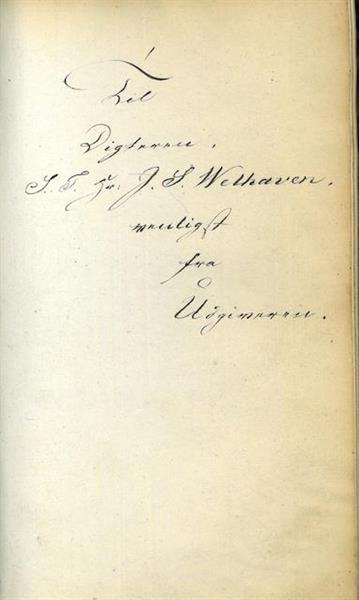 Til
Digteren,
S. T. Hr: J. S. Welhaven,
venligst
fra
Udgiveren.